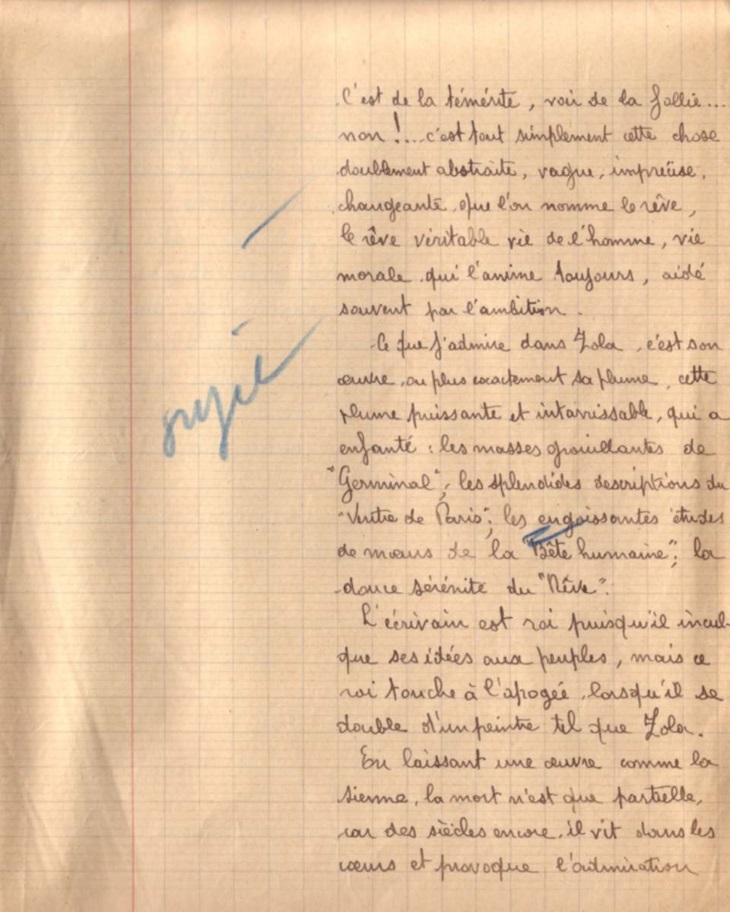 C'est de la témérité, voir de la follie...
non !... c'est tout simplement cette chose
doublement abstraite, vague, imprécise,
changeante que l'on nomme le rêve,
le rêve véritable vie de l'homme, vie
morale qui l'anime toujours, aidé
souvent par l'ambition.
Ce que j'admire dans Zola, c'est son
œuvre, ou plus exactement sa plume, cette
plume puissante et intarissable, qui a
enfanté : les masses grouillantes de
"Germinal"; les splendides descriptions du
"Ventre de Paris"; les engoissantes études
de mœurs de la "Bête humaine"; la
douce sérénité du "Rêve".
L'écrivain est roi puisqu'il incul-
que ses idées aux peuples, mais ce
roi touche à l'apogée, lorsqu'il se
double d'un peintre tel que Zola.
En laissant une œuvre comme la
sienne, la mort n'est que partielle,
car des siècles encore, il vit dans les
cœurs et provoque l'admiration